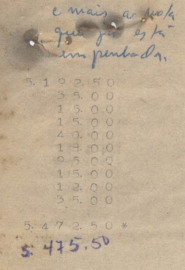 e mais a nota
que já está
empenhada.
5.192.50
35.00
15.00
15.00
40.00
15.00
35.00
15.00
15.00
35.00
5.472.50 *
5.475.50